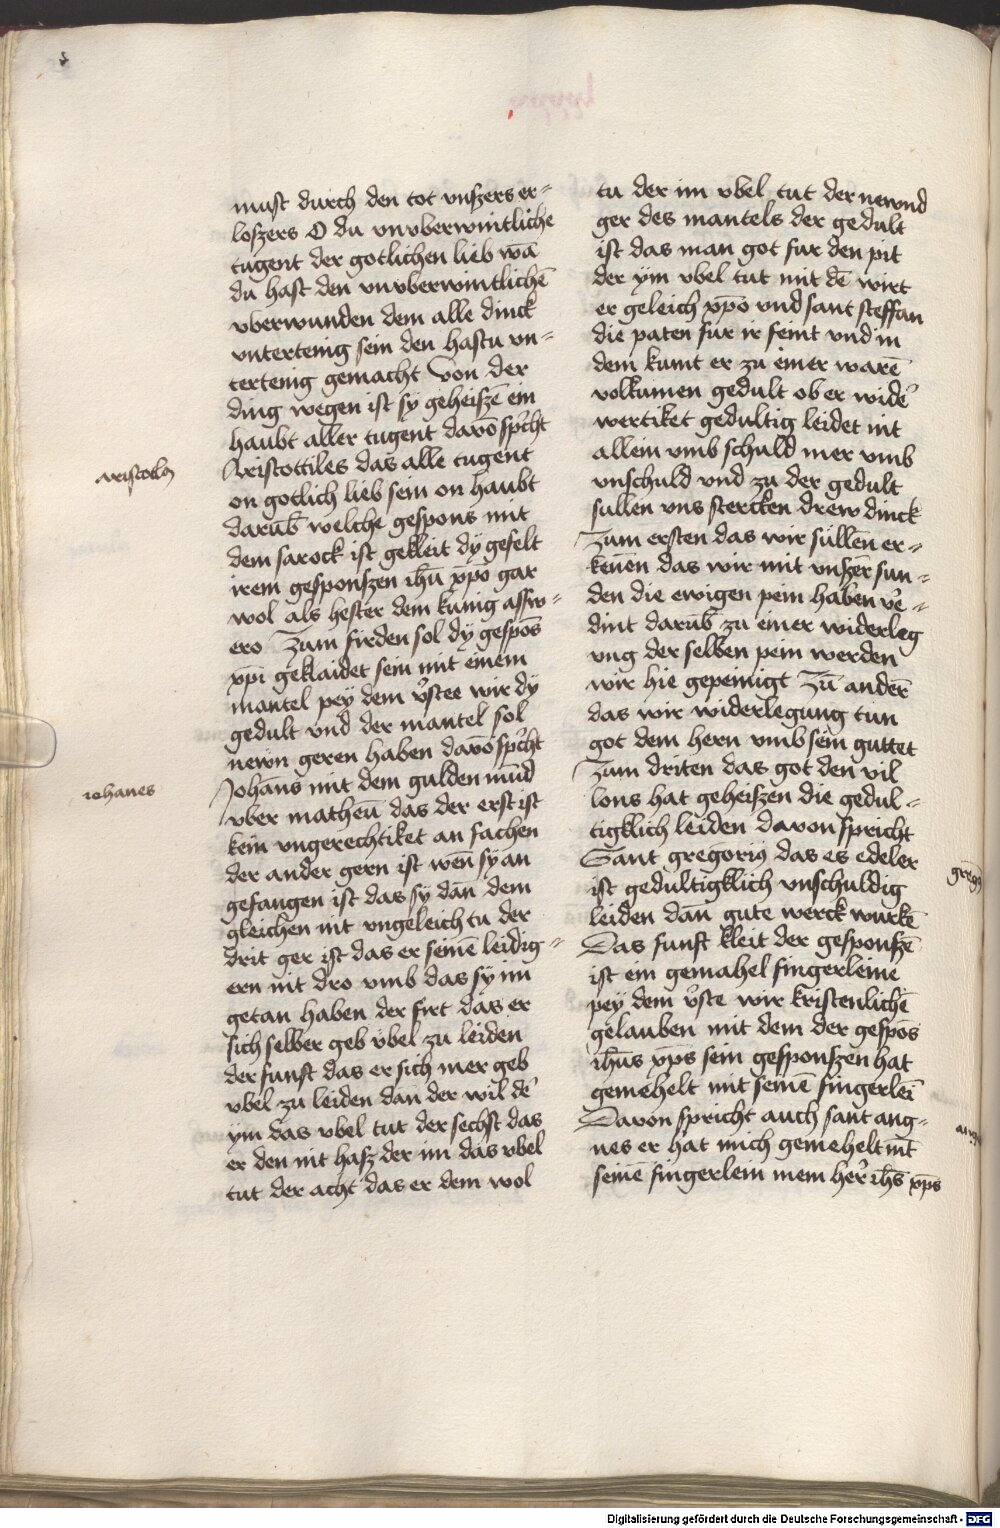 must durch den tot unszers er=
loszers O du unuberwintliche
tugent der gotlichen lieb wā
du hast den unuberwintlichē
uberwunden dem alle dinck
untertenig sein den hastu un=
tertenig gemacht Von der
ding wegen ist sy geheiszē ein
haubt aller tugent davō sp̄cht
Aristottiles das alle tugent
on gotlich lieb sein on haubt
darūb welche gespons mit
dem sarock ist gekleit dy gefelt
irem gesponszen ih̄u xp̄o gar
wol als hester dem kunig assw=
ero Zum firden sol dy gespōs
xp̄i geklaidet sein mit einem
mantel pey dem v̾stee wir dy
gedult und der mantel sol
newn geren haben davō sp̄cht
Johān̄s mit dem gulden mūd
uber matheū das der erst ist
kein ungerechtiket an fachen
der ander gern ist wēn sy an
gefangen ist das sy dān dem
gleichen nit ungeleich tu der
drit ger ist das er seinē leidig=
ern nit dro umb das sy im
getan haben der firt das er
sich selber geb ubel zu leiden
der funft das er sich mer geb
ubel zu leiden dan der wil de̾
ym das ubel tut der sechst das
er den nit hasz der im das ubel
tut der acht das er dem wol
tu der im ubel tut der newnd
ger des mantels der gedult
ist das man got fur den pit
der ym ubel tut mit dē wirt
er geleich xp̄o und sant steffan
die paten fur ir feint und in
dem kumt er zu einer warē
volkumen gedult ob er wide̾
wertiket gedultig leidet nit
allein umb schuld mer umb
unschuld und zu der gedult
sullen uns stercken drew dinck
Zum ersten das wir sullen er=
kenēn das wir mit unszer sun=
den die ewigen pein haben v̾e=
dint darūb zu einer widerleg
ung der selben pein werden
wir hie gepeinigt Zū anderē
das wir widerlegung tun
got dem hern umb sein guttet
Zum driten das got den vil
lons hat geheiszen die gedul=
tigklich leiden davon spricht
Sant gregorius das es edeler
ist gedultigklich unschuldig
leiden dān gute werck wurkē
Das funft kleit der gesponszē
ist ein gemahel fingerleine
pey dem v̾ste wir kristenlichē
gelauben mit dem der gespōs
ih̄us xp̄s sein gesponszen hat
gemehelt mit seinē fingerlei̅
Davon spricht auch sant ang=
nes er hat mich gemehelt mit
seinē fingerlein mein her̾ ih̄s xp̄s
johanes